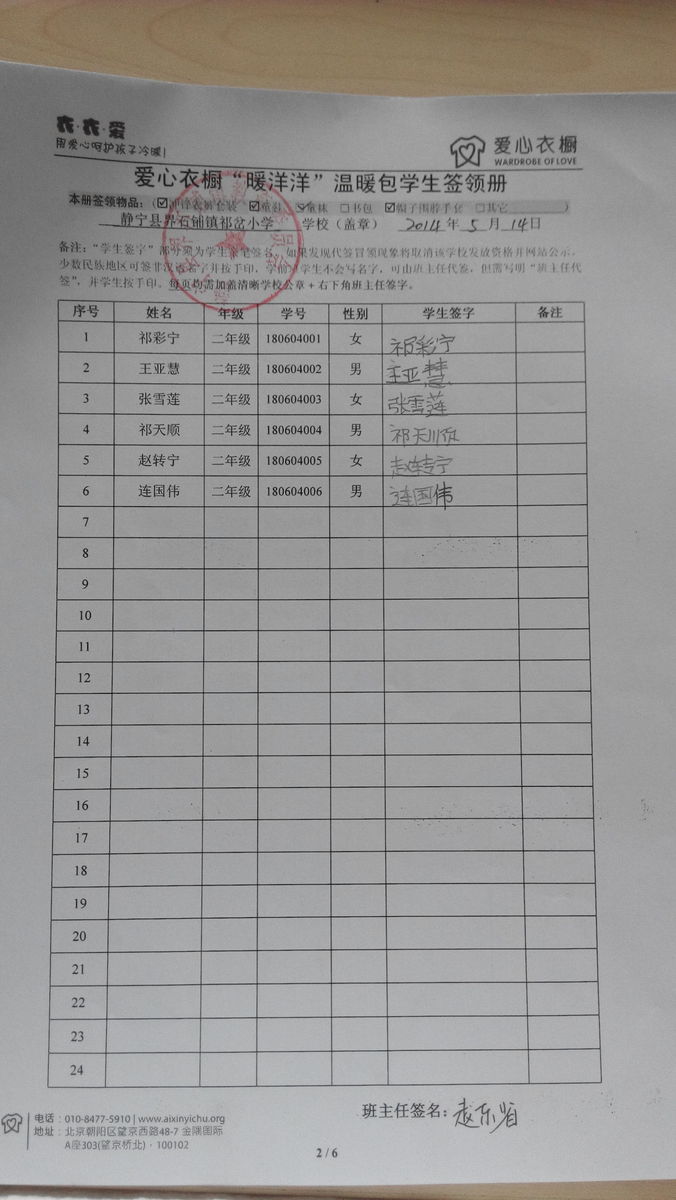 衣·衣·爱
用爱心呵护孩子冷暖!
爱心衣橱
WARDROBE OF LOVE
爱心衣橱“暖洋洋”温暖包学生签领册
本册签领物品:(☑冲锋衣裤套装 ☑童鞋 ☑童袜 □书包 ☑帽子围脖手套 □其它)
静宁县界石铺镇祁岔小学 学校(盖章) 2014年5月14日
备注:“学生签字”部分须为学生亲笔签名,如果发现代签冒领现象将取消该学校发放资格并网站公示。
少数民族地区可签非汉语名字并按手印,学前班学生不会写名字,可由班主任代签,但需写明“班主任代
签”,并学生按手印。每页均需加盖清晰学校公章+右下角班主任签字。
序号 姓名 年级 学号 性别 学生签字 备注
1 祁彩宁 二年级 180604001 女 祁彩宁
2 王亚慧 二年级 180604002 男 王亚慧
3 张雪莲 二年级 180604003 女 张雪莲
4 祁天顺 二年级 180604004 男 祁天顺
5 赵转宁 二年级 180604005 女 赵转宁
6 连国伟 二年级 180604006 男 连国伟
7
8
9
10
11
12
13
14
15
16
17
18
19
20
21
22
23
24
班主任签名:赵东省
电话:010-8477-5910 | www.aixinyichu.org
地址:北京朝阳区望京西路48-7 金隅国际
A座303(望京桥北),100102
2 / 6